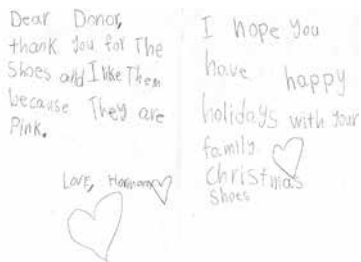 Dear Donor,
thank you for The
Shoes and I like Them
because They are
Pink.
Love,
I hope you
have happy
holidays with your
family
Christmas
Shoes